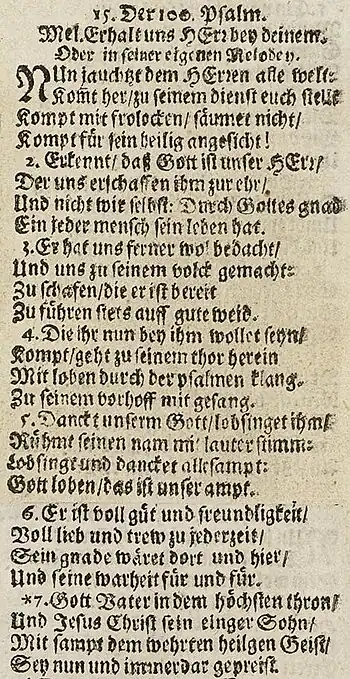 15. Der 100. Psalm.
Mel. Erhalt uns HErr bey deinem.
Oder in seiner eigenen Melodey.
NUn jauchtzt dem HErren alle welt:
Kom̃t her/zu seinem dienst euch stellt
Kompt mit frolocken/ säumet nicht/
Kompt für sein heilig angesicht!
2. Erkennt/ daß Gott ist unser HErr/
Der uns erschaffen ihm zur ehr/
Und nicht wir selbst: Durch Gottes gnad
Ein jeder mensch sein leben hat.
3. Er hat uns ferner wol bedacht/
Und uns zu seinem volck gemacht:
Zu schafen/die er ist bereit
Zu führen stets auff gute weid.
4. Die ihr nun bey ihm wollet seyn/
Kompt/geht zu seinem thor herein
Mit loben durch der psalmen klang.
Zu seinem vorhoff mit gesang.
5. Danckt unserm Gott/lobsinget ihm/
Rühmt seinen nam mit lauter stimm:
Lobsingt und dancket allesampt:
Gott loben/das ist unser ampt.
6. Er ist voll güt und freundligkeit/
Voll lieb und trew zu jederzeit/
Sein gnade wäret dort und hier/
Und seine warheit für und für.
*7. Gott Vater in dem höchsten thron/
Und Jesus Christ sein einger Sohn/
Mit sampt dem wehrten heilgen Geist/
Sey nun und immerdar gepreist.